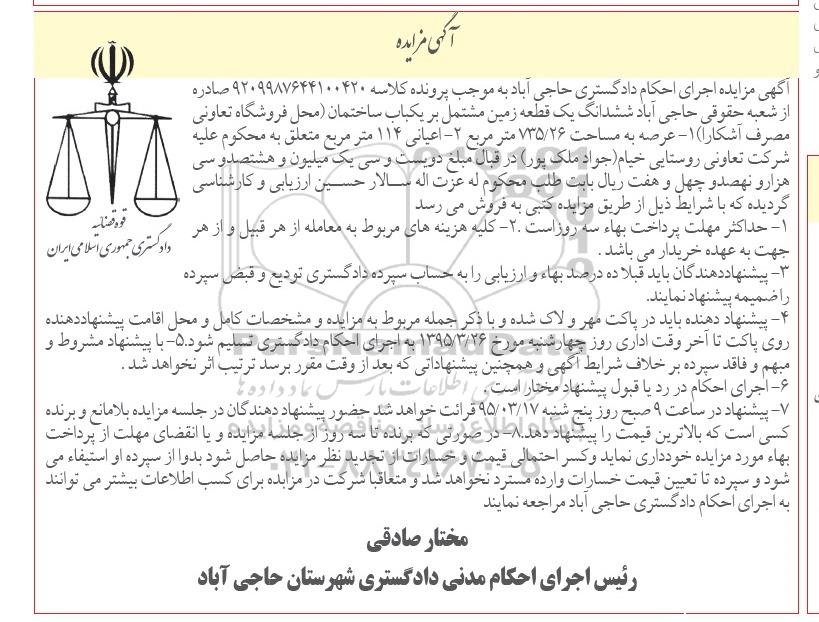 آگهی مزایده
آگهی مزایده اجرای احکام دادگستری حاجی آباد به موجب پرونده کلاسه ۹۲۰۹۹۸۷۶۴۴۱۰۰۴۲۰ صادره
از شعبه حقوقی حاجی آباد ششدانگ یک قطعه زمین مشتمل بر یکباب ساختمان (محل فروشگاه تعاونی
مصرف آشکارا)۱- عرصه به مساحت ۷۳۵/۲۶ متر مربع ۲-اعیانی ۱۱۴ متر مربع متعلق به محکوم علیه
شرکت تعاونی روستایی خیام(جواد ملک پور) در قبال مبلغ دویست و سی یک میلیون و هشتصدو سی
هزارو نهصدو چهل و هفت ریال بابت طلب محکوم له عزت اله سالار حسین ارزیابی و کارشناسی
گردیده که با شرایط ذیل از طریق مزایده کتبی به فروش می رسد
۱- حداکثر مهلت پرداخت بهاء سه روزاست .۲- کلیه هزینه های مربوط به معامله از هر قبیل و از هر
جهت به عهده خریدار می باشد .
۳- پیشنهاددهندگان باید قبلا ده درصد بهاء و ارزیابی را به حساب سپرده دادگستری تودیع و قبض سپرده
را ضمیمه پیشنهاد نمایند.
۴- پیشنهاد دهنده باید در پاکت مهر و لاک شده و با ذکر جمله مربوط به مزایده و مشخصات کامل و محل اقامت پیشنهاددهنده
روی پاکت تا آخر وقت اداری روز چهارشنبه مورخ ۱۳۹۵/۳/۲۶ به اجرای احکام دادگستری تسلیم شود.۵- با پیشنهاد مشروط و
مبهم و فاقد سپرده بر خلاف شرایط آگهی و همچنین پیشنهاداتی که بعد از وقت مقرر برسد ترتیب اثر نخواهد شد .
۶- اجرای احکام در رد یا قبول پیشنهاد مختار است .
۷- پیشنهاد در ساعت ۹ صبح روز پنج شنبه ۹۵/۰۳/۱۷ قرائت خواهد شد حضور پیشنهاد دهندگان در جلسه مزایده بلامانع و برنده
کسی است که بالاترین قیمت را پیشنهاد دهد.۸- در صورتی که برنده تا سه روز از جلسه مزایده و یا انقضای مهلت از پرداخت
بهاء مورد مزایده خودداری نماید وکسر احتمالی قیمت و خسارات از تجدید نظر مزایده حاصل شود بدوا از سپرده او استیفاء می
شود و سپرده تا تعیین قیمت خسارات وارده مسترد نخواهد شد و متعاقبا شرکت در مزابده برای کسب اطلاعات بیشتر می توانند
به اجرای احکام دادگستری حاجی آباد مراجعه نمایند
مختار صادقی
رئیس اجرای احکام مدنی دادگستری شهرستان حاجی آباد
قوه قضائیه
دادگستری جمهوری اسلامی ایران
ParsNamadData
پایگاه اطلاع رسانی مناقصه و مزایده
۰۲۱-۸۸۳۴۹۶۷۰-۵